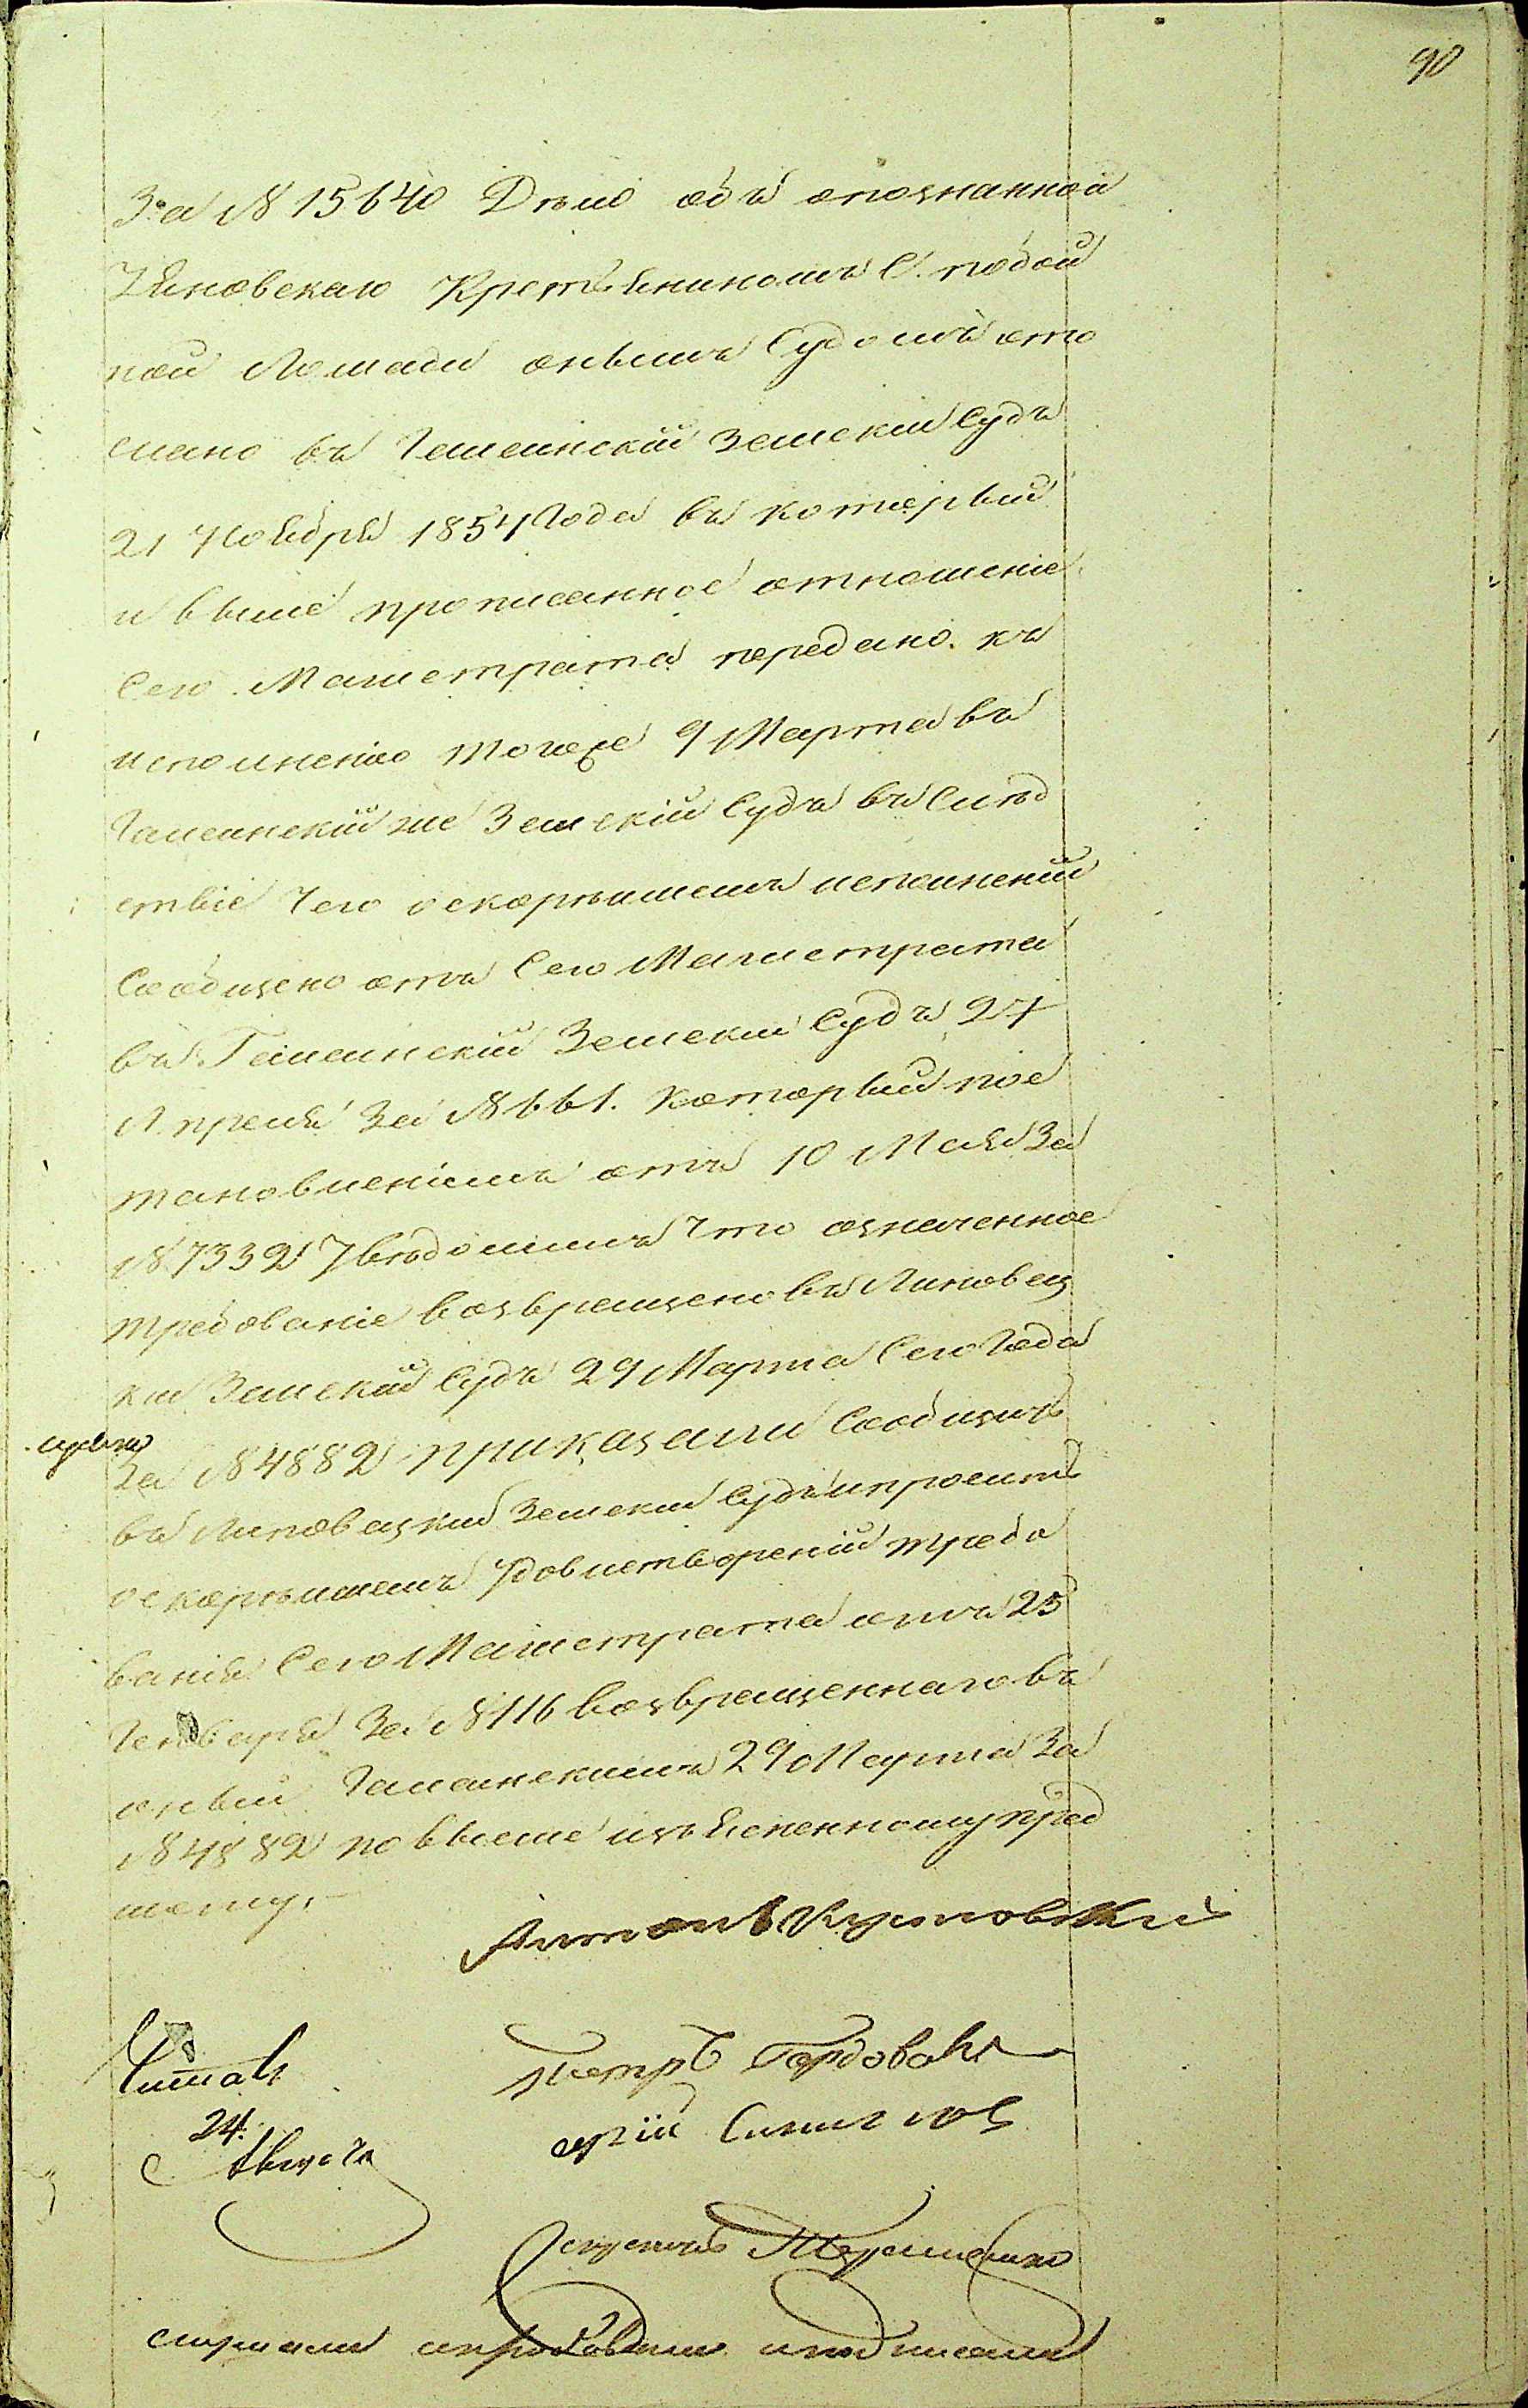 90
За № 15640 Дѣло объ опознанной
Яновскаго Крестьяниномъ С. подой
ной Лошади онымъ Судомъ ото
слано въ Гайсинскій Земскій Судъ
21 Ноября 1854 Года въ который
и выше прописанное отношеніе
Сего Магистрата передано къ
исполненію тогоже 9 Марта въ
Гайсинскій же Земскій Судъ въ Слѣд
ствіе Чего о скорѣйшемъ исполненіи
Сообщено отъ Сего Магистрата
въ Гайсинскій Земскій Судъ 27
Апреля За № 661. который пос
тановленіемъ отъ 10 Мая За
№ 7332 Увѣдомилъ что означенное
требованіе возвращено въ Липовец
кій Земскій Судъ 29 Марта Сего Года
За № 4882 приказали Сообщить
въ Липовецкій Земскій Судъ и просить
о скорѣйшемъ Удовлетвореніи требо
ванія Сего Магистрата отъ 25
Генваря За № 116 возвращеннаго въ
оный Гайсинскимъ 29 Марта За
№ 4882 по выше изъясненному пред
мету.
Антонъ
Читалъ
Петръ
24
Августа
Секретарь
слушали и подписали